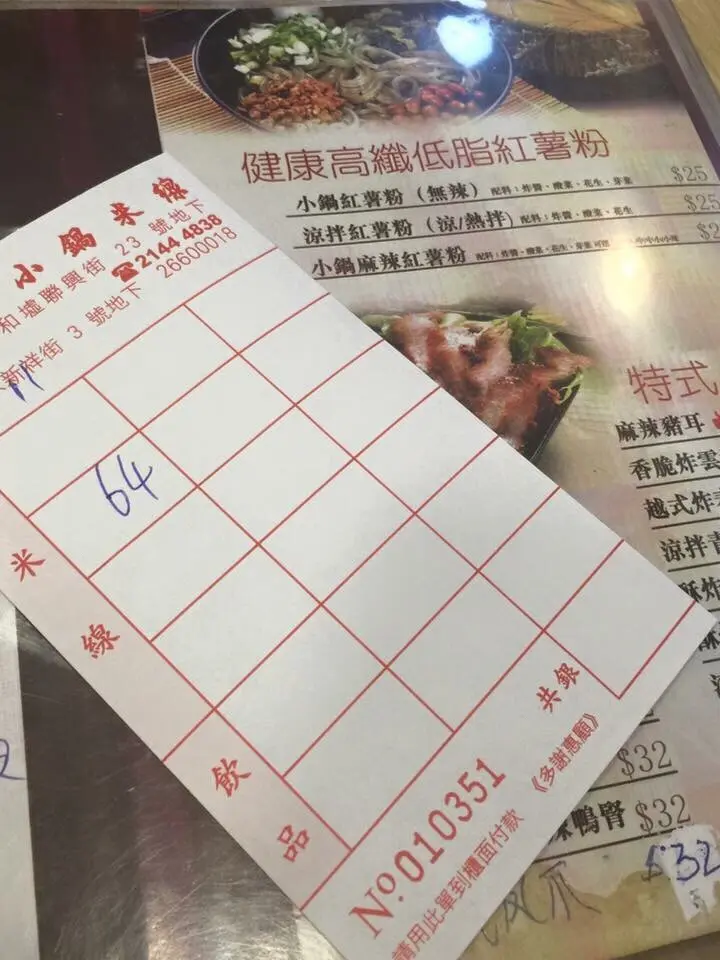 小鍋米線
和墟聯興街 23 號地下
☎2144 4838
新祥街 3 號地下 26600018
64
米線
飲品
共銀
《多謝惠顧》
Nº 010351
請用此單到櫃面付款
健康高纖低脂紅薯粉
小鍋紅薯粉（無辣） 配料：炸醬、酸菜、花生、芽菜 $25
涼拌紅薯粉（涼/熱拌） 配料：炸醬、酸菜、花生 $25
小鍋麻辣紅薯粉 配料：炸醬、酸菜、花生、芽菜 $2
特式
麻辣豬耳
香脆炸雲
越式炸
涼拌青
酥炸
$32
鴨腎 $32
$32